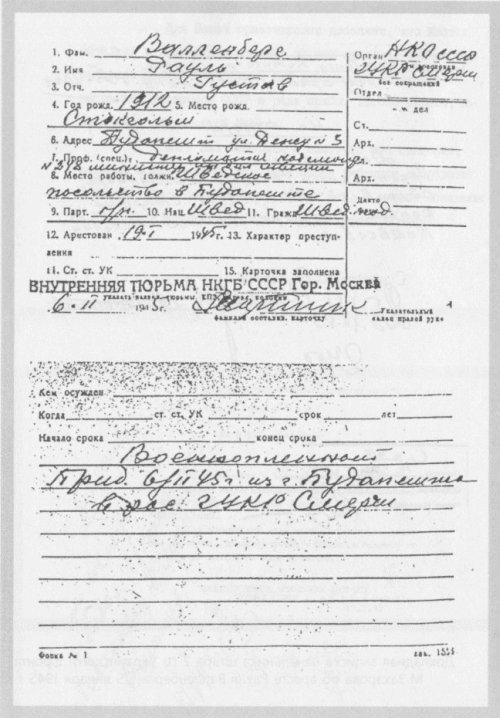 1. Фам. Валленберг
2. Имя Рауль
3. Отч. Густав
4. Год рожд. 1912 5. Место рожд.
Стокгольм
6. Адрес Будапешт ул.
7. Проф. (спец.)
8. Место работы, должн. Шведское
посольство в Будапеште
9. Парт. б/п. 10. Нац. Швед 11. Гражд. Швед. под.
12. Арестован 19-I 1945 г. 13. Характер преступ-
ления
14. Ст. ст. УК 15. Карточка заполнена
ВНУТРЕННЯЯ ТЮРЬМА НКГБ СССР Гор. Москва
6-II 1945 г.
фамилия составив. карточку
Указательный
палец правой руки
Орган НКО СССР
ГУКР Смерш
без сокращений
Отдел
" " дел
Ст.
Арх.
Арх.
Дакто
Кем осужден
Когда ст. ст. УК срок лет
Начало срока конец срока
Военнопленный
Приб. 6/II 45 г из г. Будапешта
в рас. ГУКР Смерш
Форма № 1
зак.